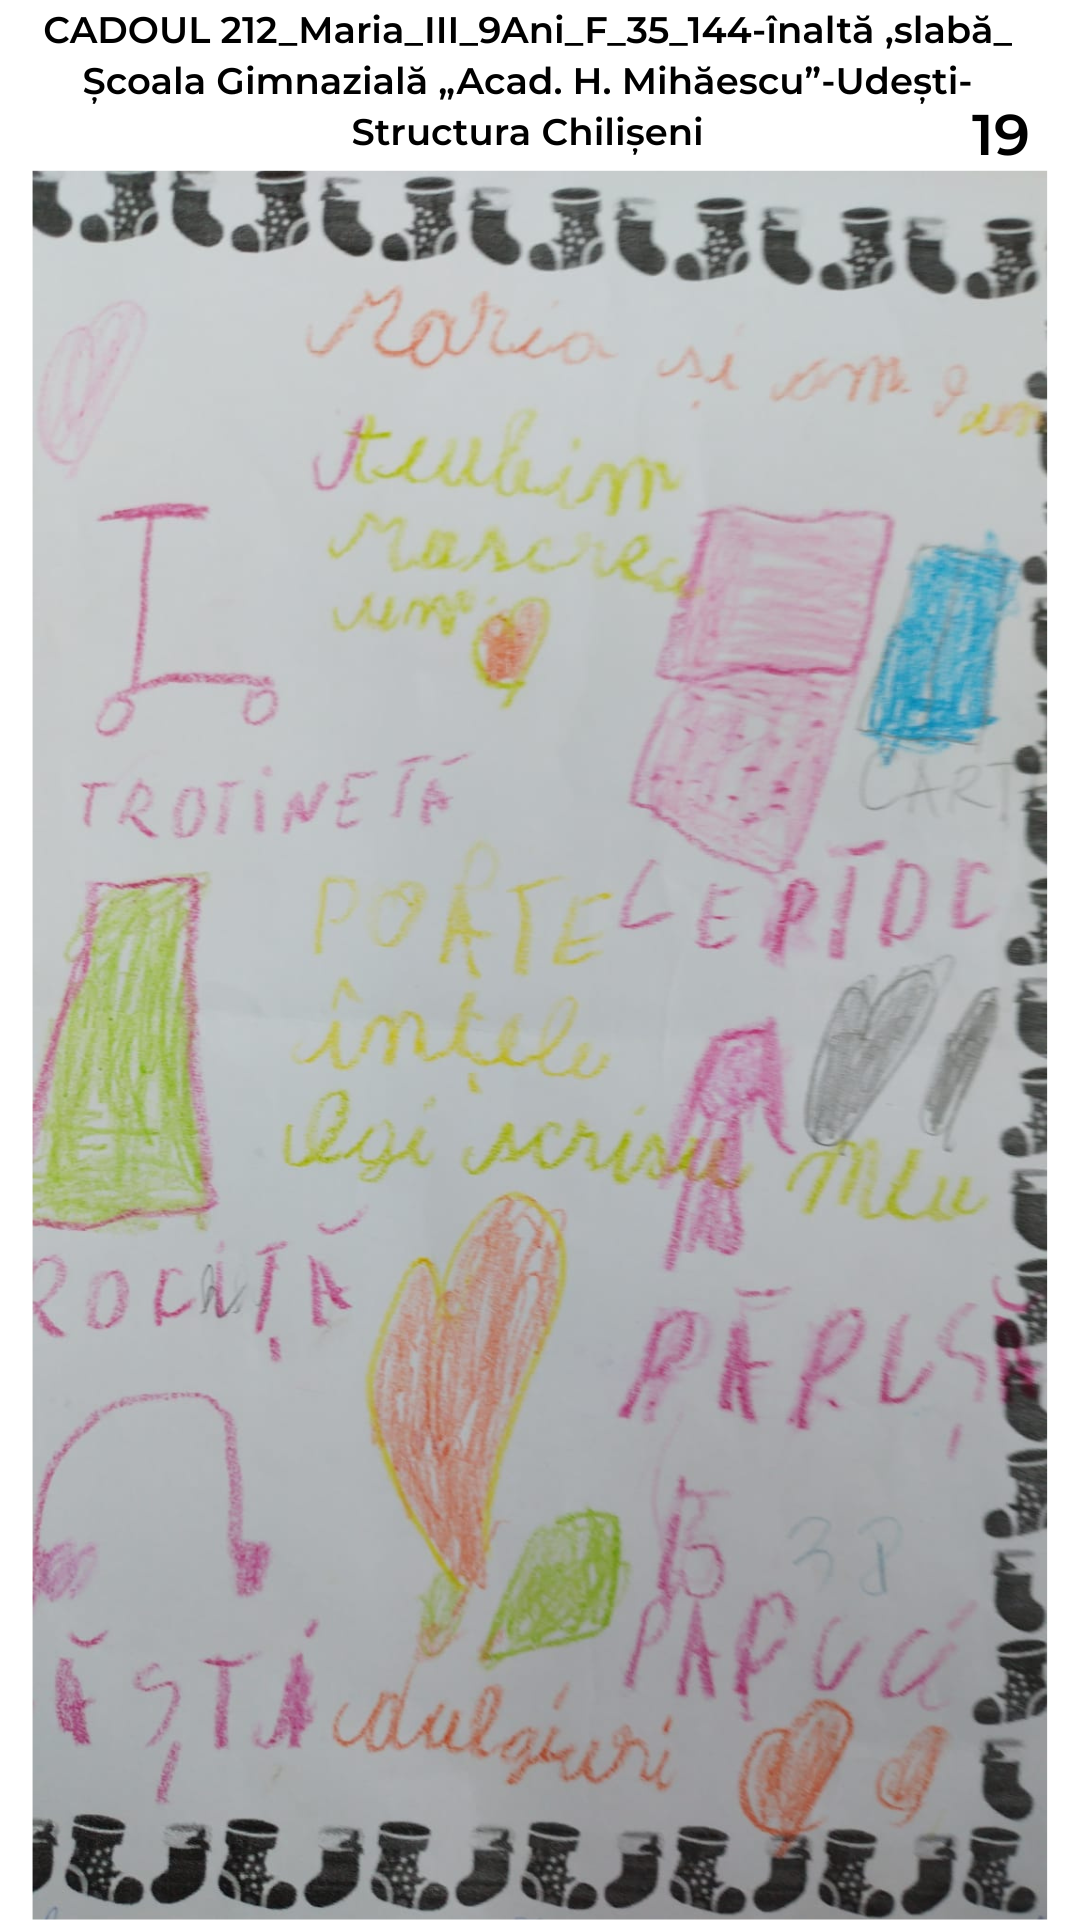 CADOUL 212_Maria_III_9Ani_F_35_144-înaltă ,slabă_
Școala Gimnazială „Acad. H. Mihăescu”-Udești-
Structura Chilișeni
19
Maria și am 9 an
Teubim
Mascrec
um
TROTINETĂ
CART
LEPTDC
POATE
înțele
egi scrisu meu
ROCIȚĂ
PĂPUȘ
38
PAPUCI
ĂȘTI
dulgiuri